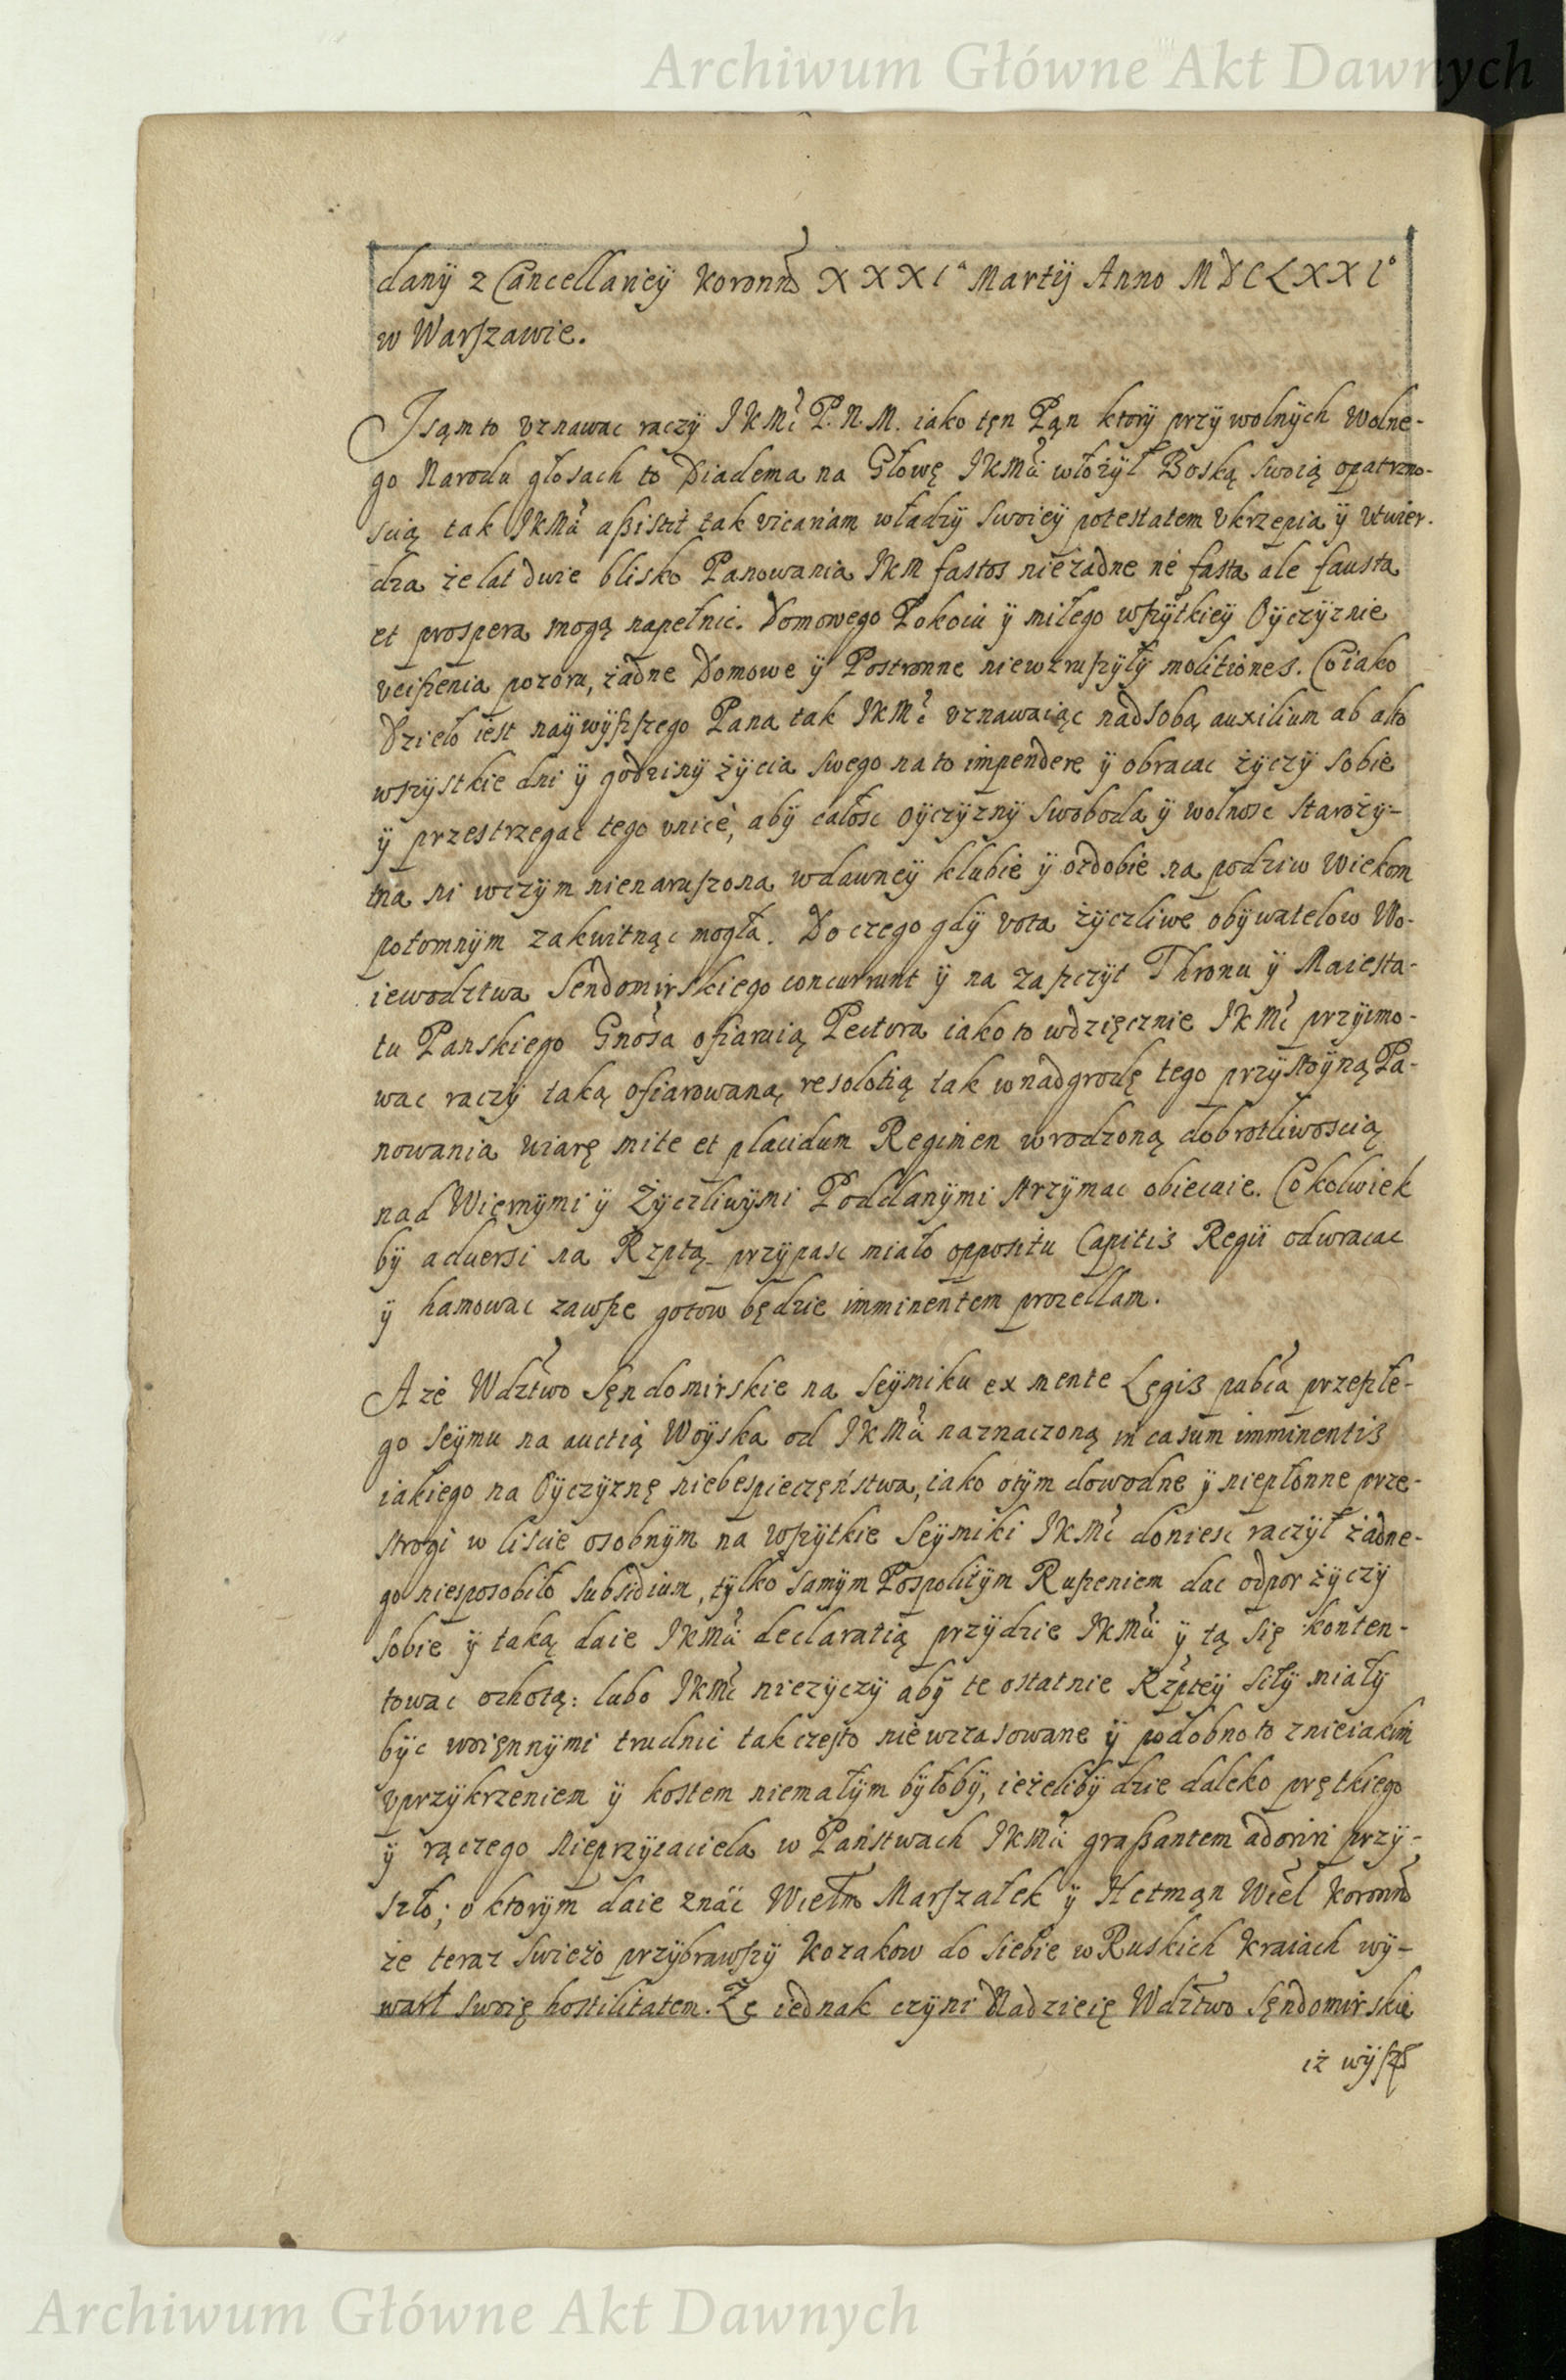 Archiwum Główne Akt Dawnych
dany z Cancellariey Koronn XXXIa Martij Anno MDCLXXIo
w Warszawie.
I sąm to vznawac raczÿ IKMć P. N. M. iako tęn Pąn ktorÿ przÿ wolnÿch Wolne-
go Narodu głosach to Diadema na Głowę IKMći włożÿł Boską swoią opatrzno-
scią tak IKMći assistit tak vicariam władzÿ swoieÿ potestatem vkrzepia ÿ vtwier-
dza że lat dwie blisko Panowania IKM fastos nieżadne nè fasta ale fausta
et prospera mogą napełnic. Domowego Pokoiu ÿ miłego wszÿtkieÿ Oÿczÿznie
vcieszenia pozoru, żadne Domowe ÿ Postronne niewzruszÿłÿ molitiones. Co iako
Dzieło iest naÿwÿszszego Pana tak IKMć vznawaiąc nad sobą auxilium ab alto
wszÿstkie dni ÿ godzinÿ żÿcia swego na to impendere ÿ obracac żÿczÿ sobie
ÿ przestrzegac tego vnicè, abÿ całosc Oÿczÿznÿ swoboda ÿ wolnosc starożÿ-
tna ni wczÿm nienaruszona wdawneÿ klubie ÿ ozdobie na podziw Wiekom
potomnÿm zakwitnąc mogła. Do czego gdÿ vota żÿczliwe obÿwatelow Wo-
iewodztwa Sendomirskiego concurrunt ÿ na zaszczÿt Thronu ÿ Maiesta-
tu Panskiego Gnosa ofiaruią Pectora iako to wdzięcznie IKMć przÿimo-
wac raczÿ taką ofiarowaną resolotią tak wnadgrodę tego przÿstoÿną Pa-
nowania wiarę mite et placidum Regimen wrodzoną dobrotliwoscią
nad Wiernÿmi ÿ Żÿczliwÿmi Poddanÿmi strzÿmac obiecuie. Cokolwiek
bÿ aduersi na Rzptą przÿpasc miało oppositu Capitis Regii odwracac
ÿ hamowac zawsze gotow będzie imminentem procellam.
A że Wdztwo Sęndomirskie na Seÿmiku ex mente Legis pubca przeszłe-
go Seÿmu na auctią Woÿska od IKMći naznaczoną in casum imminentis
iakiego na Oÿczÿznę niebespieczęństwa, iako otÿm dowodne ÿ niepłonne prze-
strogi w liscie osobnÿm na wszÿtkie Seÿmiki IKMć donieśc raczÿł żadne-
go niesposobiło subsidium, tÿlko samÿm Pospolitÿm Ruszeniem dac odpor żÿczÿ
sobie ÿ taką daie IKMći declaratią przÿdzie IKMći ÿ tą się konten-
towac ochotą: lubo IKMć nieżÿczÿ abÿ te ostatnie Rzpteÿ siłÿ miałÿ
bÿc woięnnÿmi trudnic tak często niewczasowane ÿ podobno to znieiakim
vprzÿkrzeniem ÿ kostem niemałÿm bÿłobÿ, ieżelibÿ dzie daleko prętkiego
ÿ rączego Nieprzÿiaciela w Państwach IKMći grassantem adoriri przÿ-
szło; o ktorÿm daie znać Wielm Marszałek ÿ Hetmąn Wiel Koronn
że teraz swieżo przÿbrawszÿ Kozakow do siebie w Ruskich Kraiach wÿ-
warł swoię hostilitatem. Że iednak czÿni Nadzieię Wdztwo Sęndomirskie
iż wÿsz
Archiwum Główne Akt Dawnych